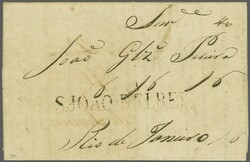 Snr.
João Glz Pereira
S. JOAO DEL REI
Rio de Janeiro